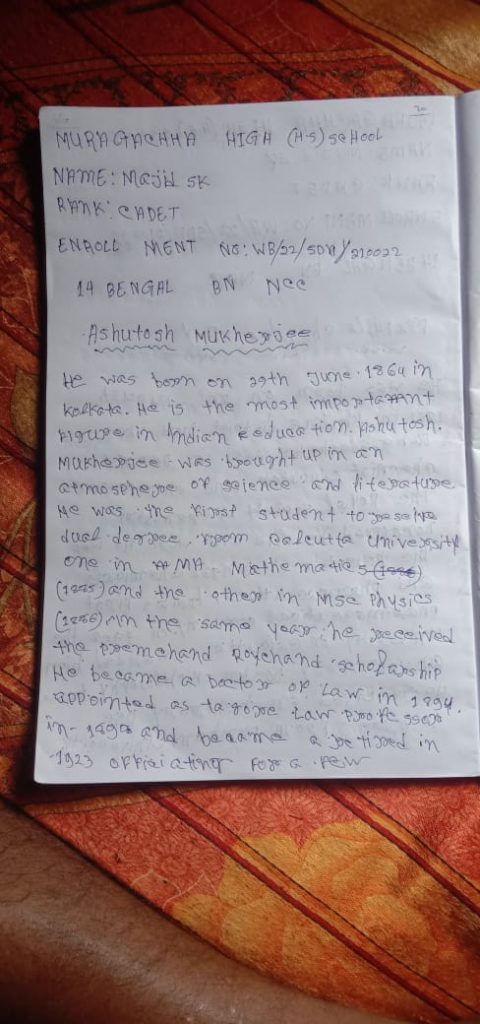 20
MURAGACHHA HIGH (H-S) SCHOOL
NAME: MAJN SK
RANK: CADET
ENROLL MENT NO: WB/22/SDN/210022
14 BENGAL BN NCC
Ashutosh Mukherjee
He was born on 29th June 1864 in
Kolkata. He is the most importamnt
Figure in Indian eeducation. Ashutosh.
Mukherjee was brought up in an
atmosphere of science and literature.
He was the first student to reseive
dual degree from Calcutta University
one in MA Mathematics
(1885) and the other in Msc Physics
(1886) in the same year he received
the premchand Roychand scholarship
He became a Doctor of Law in 1894.
appointed as tagore Law professor
in and became a retired in
1923 officiating For a Few